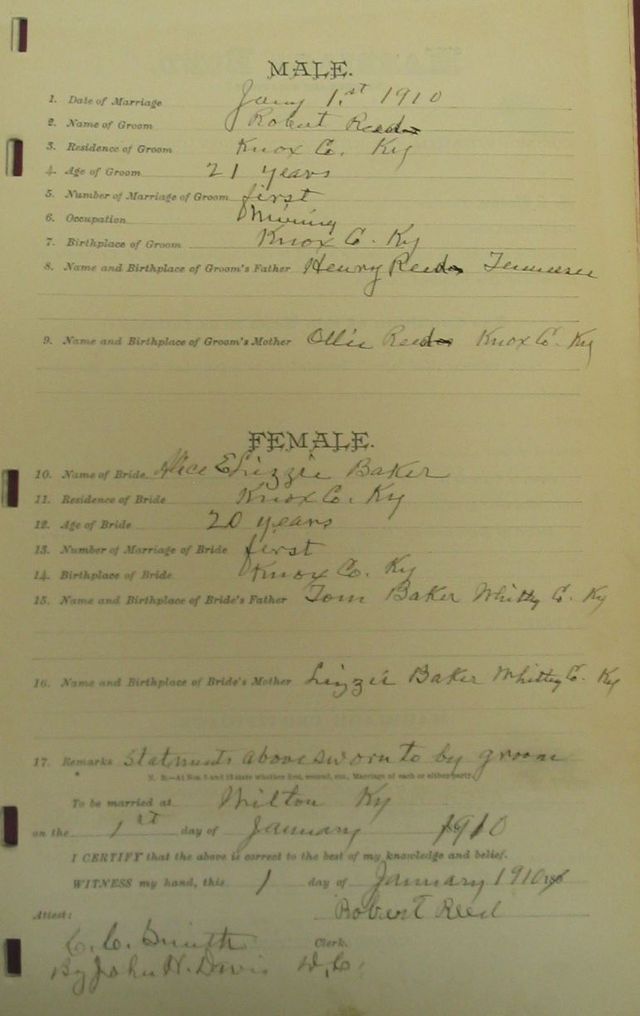 MALE.
1. Date of Marriage Jany 1.st 1910
2. Name of Groom Robert Reeds
3. Residence of Groom Knox Co. Ky
4. Age of Groom 21 years
5. Number of Marriage of Groom first
6. Occupation Mining
7. Birthplace of Groom Knox C. Ky
8. Name and Birthplace of Groom's Father Henry Reeds Tennessee
9. Name and Birthplace of Groom's Mother Ollie Reeds Knox C. Ky
FEMALE.
10. Name of Bride Alice E Lizzie Baker
11. Residence of Bride Knox Co. Ky
12. Age of Bride 20 years
13. Number of Marriage of Bride first
14. Birthplace of Bride Knox Co. Ky
15. Name and Birthplace of Bride's Father Tom Baker Whitly C. Ky
16. Name and Birthplace of Bride's Mother Lizzie Baker Whitley C. Ky
17. Remarks Statments above sworn to by groom
N. B.—At Nos. 5 and 13 state whether first, second, etc., Marriage of each or either party.
To be married at Wilton Ky
on the 1st day of January 1910
I CERTIFY that the above is correct to the best of my knowledge and belief.
WITNESS my hand, this 1 day of January 1910
Robert Reed
Attest:
C. C. Smith Clerk.
By John H. Davis D.C.